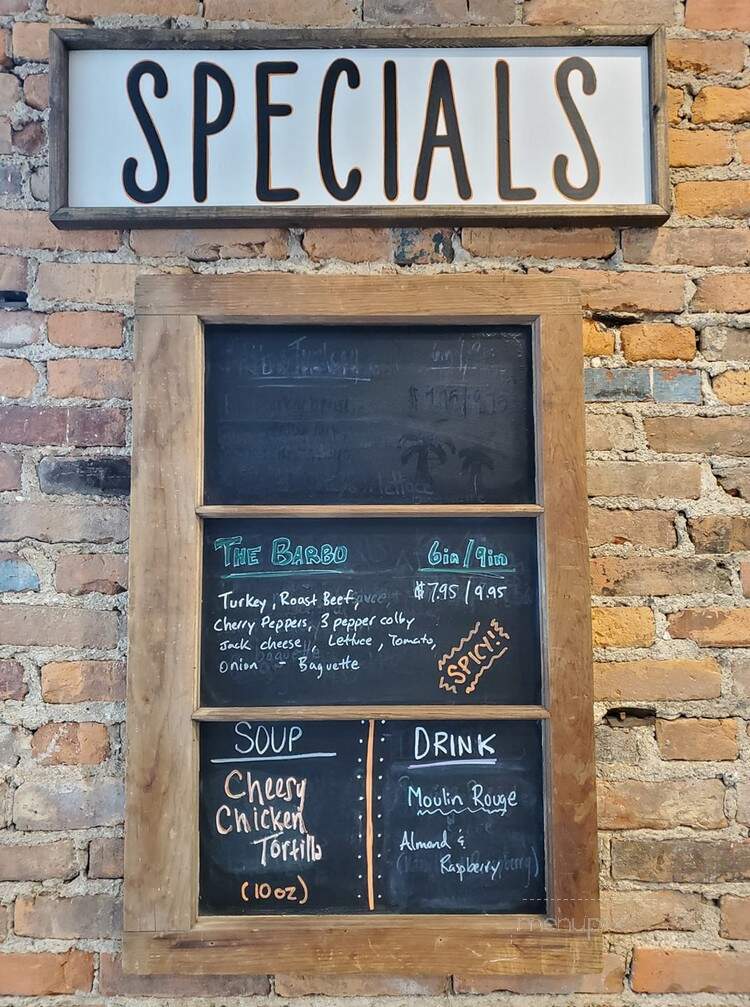 SPECIALS
Turkey 6in/9in
$7.95/9.95
lettuce
THE BARBO 6in/9in
Turkey, Roast Beef, $7.95/9.95
Cherry Peppers, 3 pepper colby
Jack cheese, Lettuce, Tomato,
Onion - Baguette
SPICY!!
SOUP
Cheesy
Chicken
Tortilla
(10oz)
DRINK
Moulin Rouge
Almond &
Raspberry